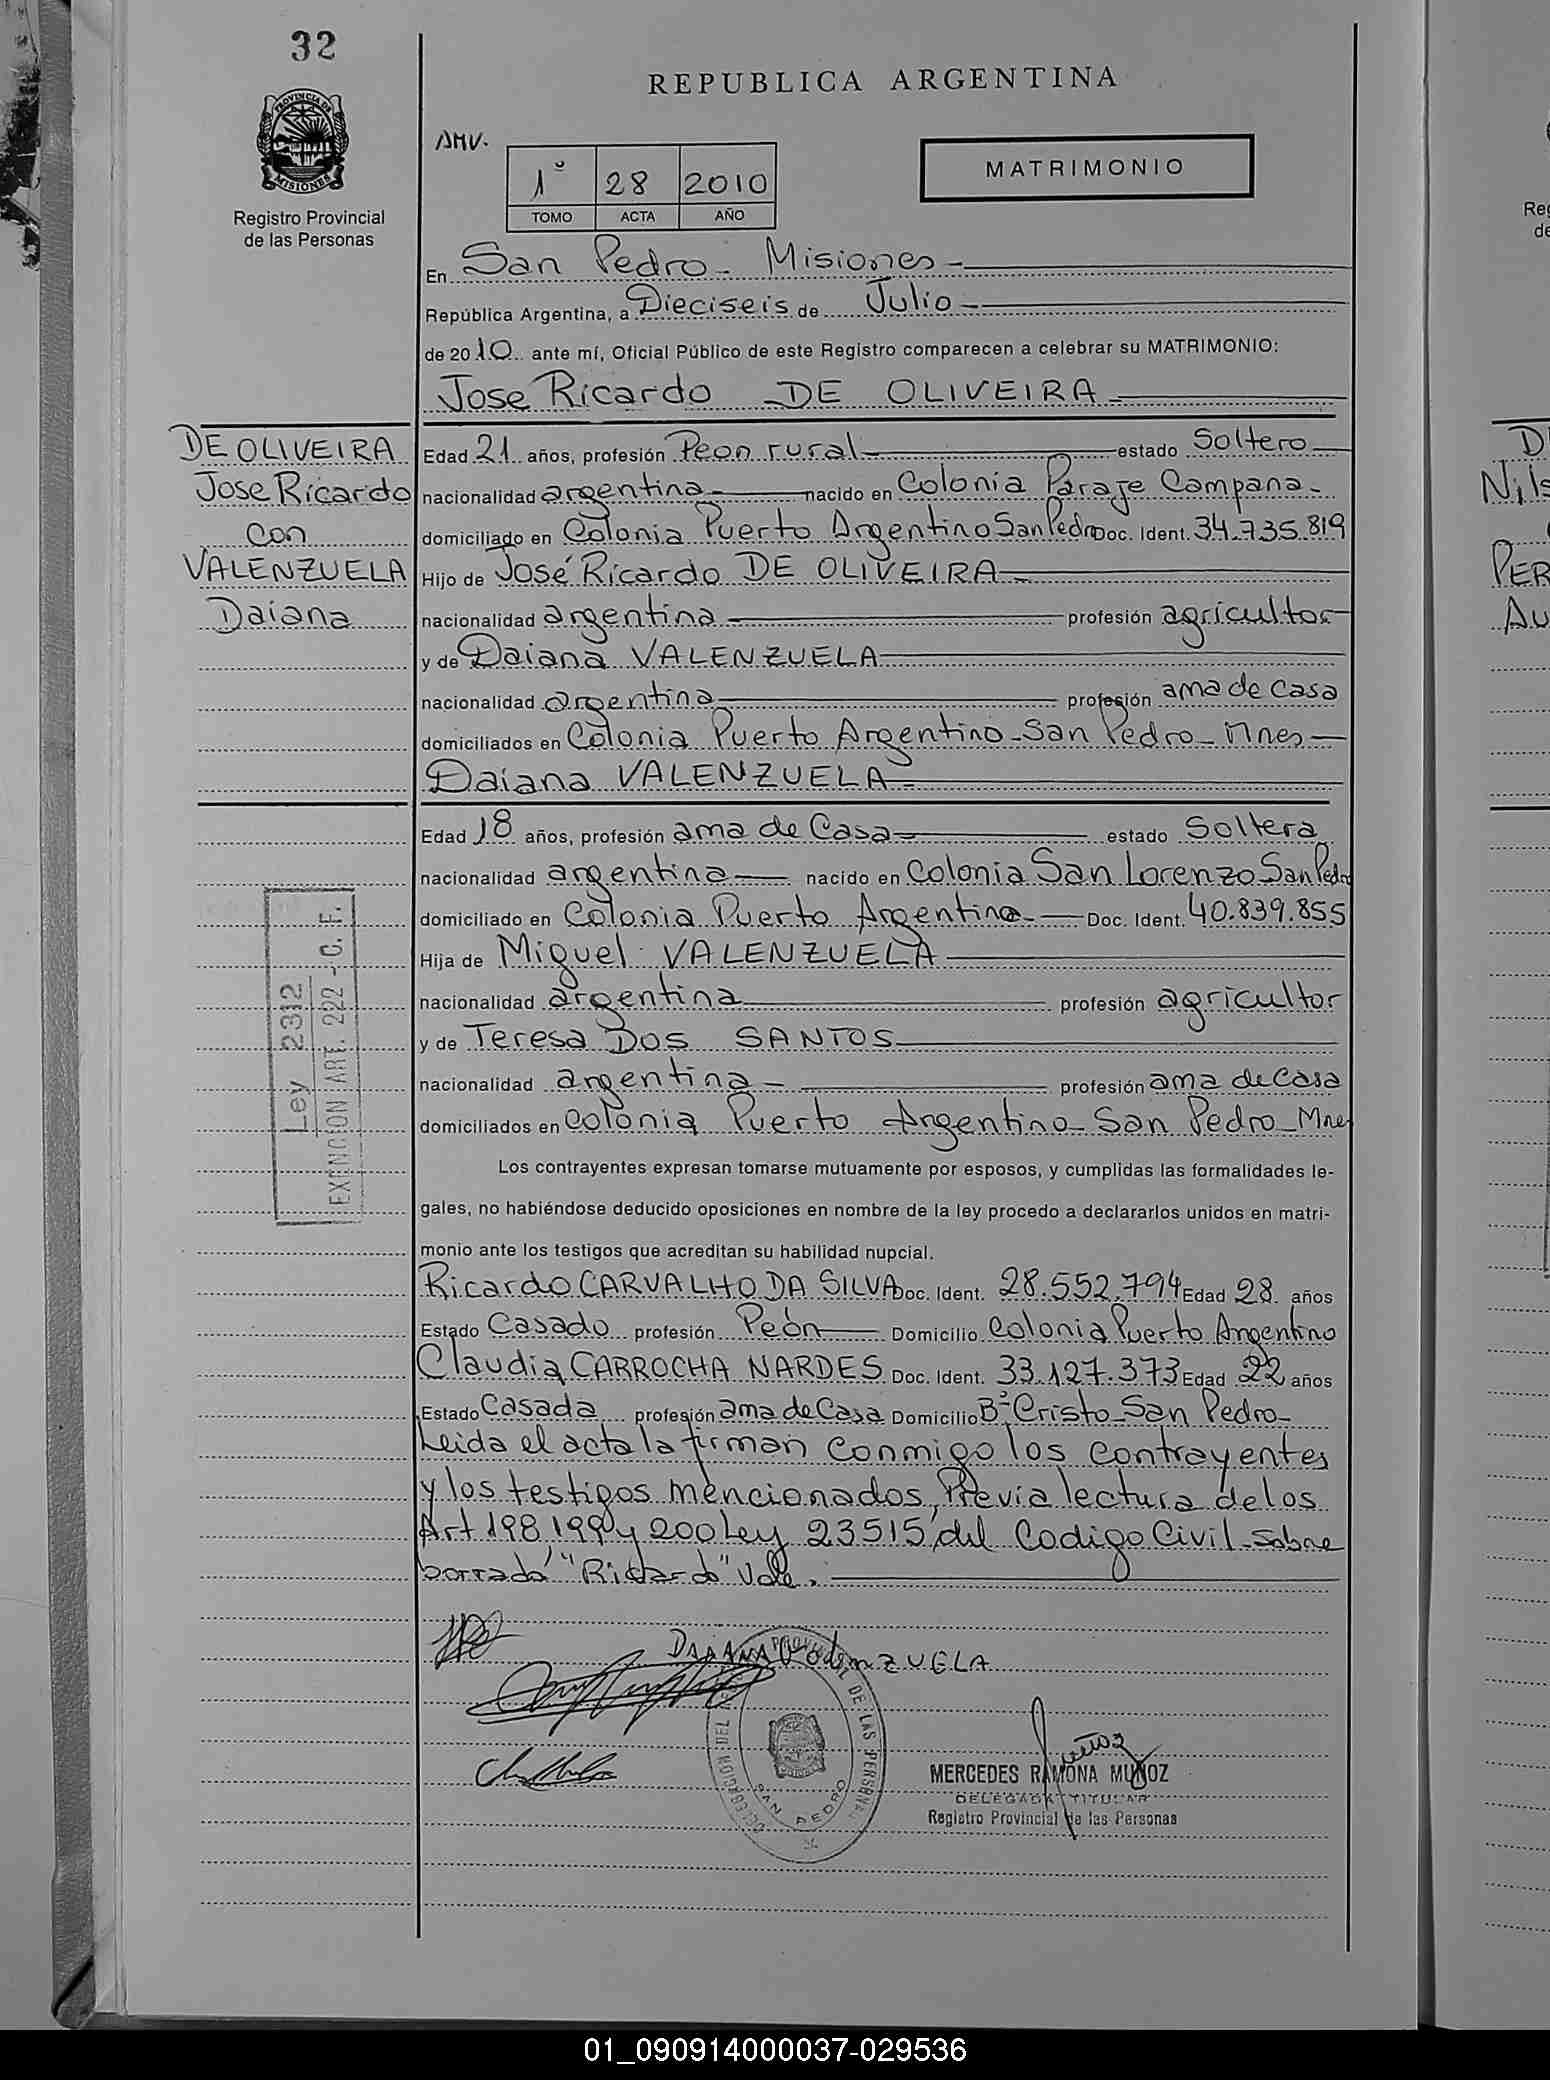 32
REPUBLICA ARGENTINA
PROVINCIA DE
MISIONES
Registro Provincial
de las Personas
AMV.
1º 28 2010
TOMO ACTA AÑO
MATRIMONIO
En San Pedro - Misiones -
República Argentina, a Dieciseis de Julio -
de 2010 ante mí, Oficial Público de este Registro comparecen a celebrar su MATRIMONIO:
Jose Ricardo DE OLIVEIRA
DE OLIVEIRA
Jose Ricardo
con
VALENZUELA
Daiana
Edad 21 años, profesión Peon rural estado Soltero
nacionalidad argentina nacido en Colonia Paraje Campana -
domiciliado en Colonia Puerto Argentino San Pedro Doc. Ident. 34.735.819
Hijo de José Ricardo DE OLIVEIRA
nacionalidad argentina profesión agricultor
y de Daiana VALENZUELA
nacionalidad argentina profesión ama de casa
domiciliados en Colonia Puerto Argentino - San Pedro - Mnes
Daiana VALENZUELA
Edad 18 años, profesión ama de Casa estado Soltera
nacionalidad argentina nacido en Colonia San Lorenzo San Pedro
domiciliado en Colonia Puerto Argentino - Doc. Ident. 40.839.855
Hija de Miguel VALENZUELA
nacionalidad argentina profesión agricultor
y de Teresa DOS SANTOS
nacionalidad argentina - profesión ama de Casa
domiciliados en Colonia Puerto Argentino - San Pedro - Mnes
Ley 2312
EXENCION ART. 222 - C. F.
Los contrayentes expresan tomarse mutuamente por esposos, y cumplidas las formalidades le-
gales, no habiéndose deducido oposiciones en nombre de la ley procedo a declararlos unidos en matri-
monio ante los testigos que acreditan su habilidad nupcial.
Ricardo CARVALHO DA SILVA Doc. Ident. 28.552.794 Edad 28 años
Estado Casado profesión Peón Domicilio Colonia Puerto Argentino
Claudia CARROCHA NARDES Doc. Ident. 33.127.373 Edad 22 años
Estado Casada profesión ama de Casa Domicilio Bº Cristo - San Pedro -
Leida el acta la firman conmigo los contrayentes
y los testigos mencionados, Previa lectura de los
Art 198, 199 y 200 Ley 23515 del Codigo Civil - Sobre
borrado "Ricardo" Vale.
DAIANA ValenZUELA
DELEGACION DEL REG. PROVINCIAL DE LAS PERSONAS
SAN PEDRO
Muñoz
MERCEDES RAMONA MUÑOZ
DELEGADA TITULAR
Registro Provincial de las Personas
01_090914000037-029536